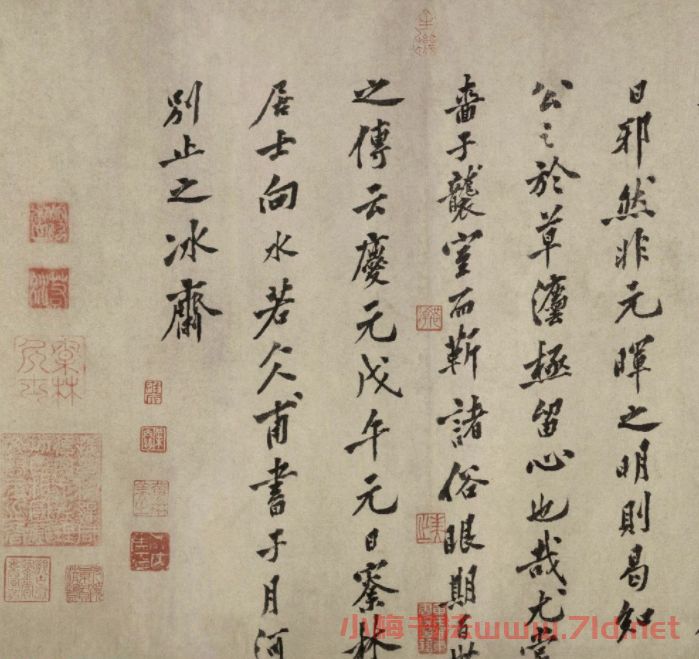 日邪然非元暉之明則曷知
公之於草灋極留心也哉尤當
嗇于襲室而靳諸俗眼期百世
之傳云慶元戊午元日寮林
居士向水若仌甫書于月河
別止之冰齋
小梅书法www.7ld.net